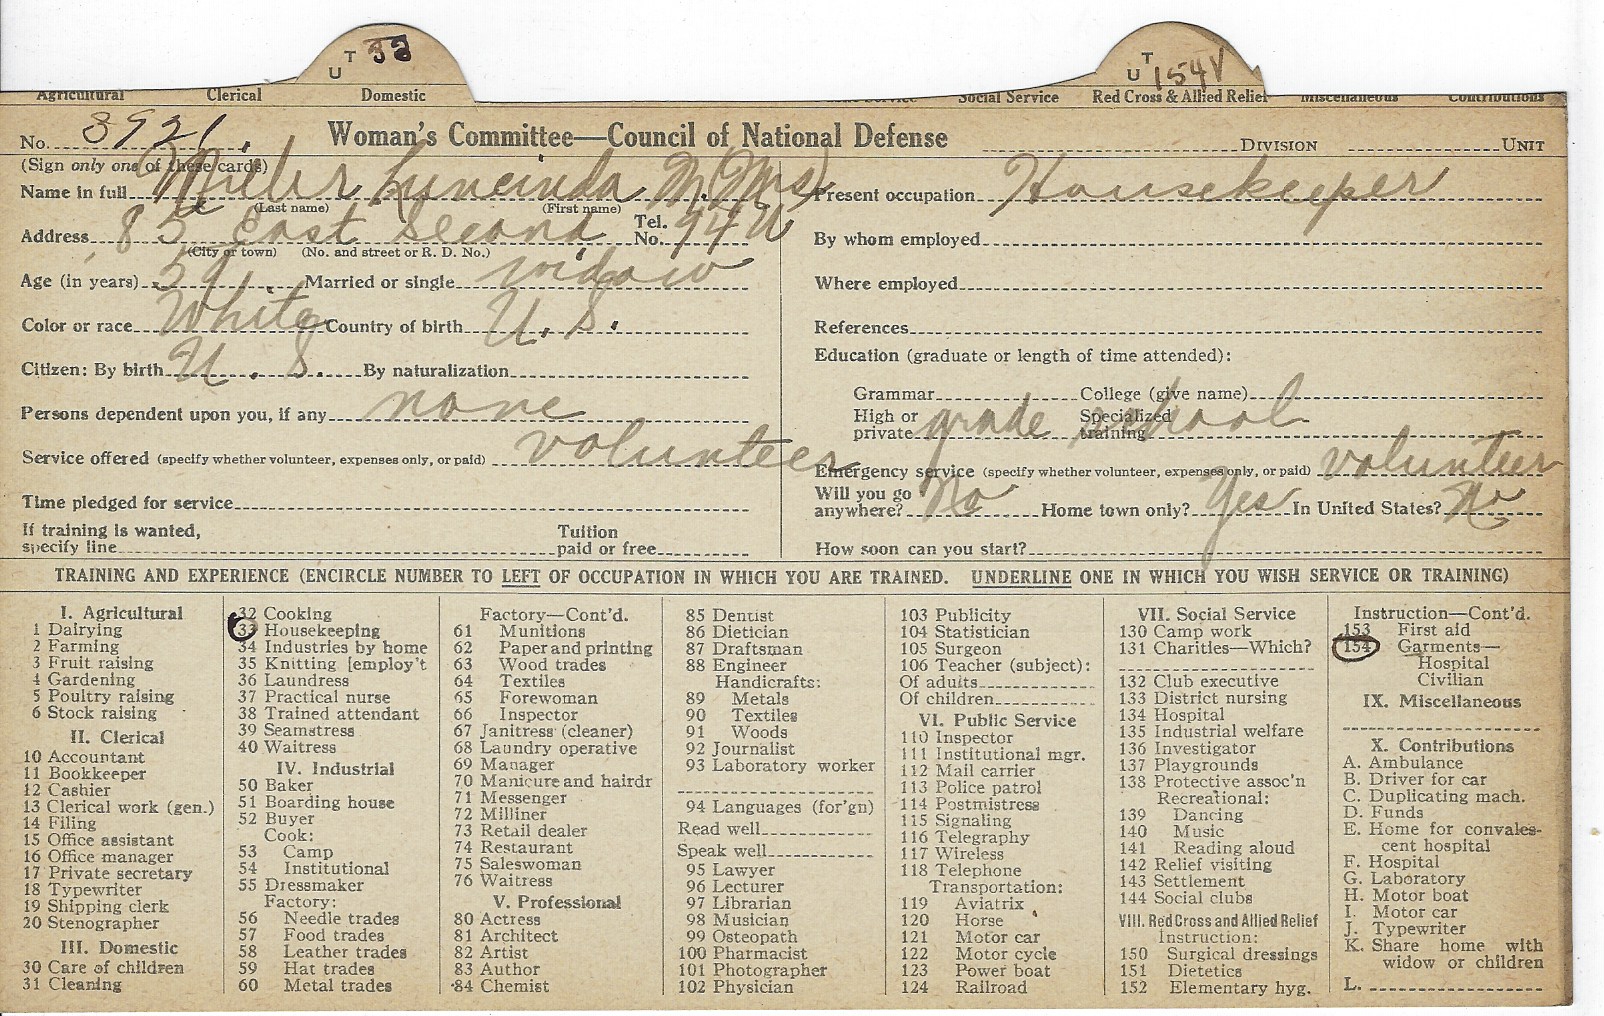 T U 33
T U 154 V
Agricultural Clerical Domestic Social Service Red Cross & Allied Relief Miscellaneous Contributions
No. 3921. Woman's Committee—Council of National Defense DIVISION UNIT
(Sign only one of these cards)
Name in full Miller M. (Mrs)
(Last name) (First name)
Address 85 East Second Tel. No. 94
(City or town) (No. and street or R. D. No.)
Age (in years) 59. Married or single widow
Color or race White Country of birth U. S.
Citizen: By birth U. S. By naturalization
Persons dependent upon you, if any none
Service offered (specify whether volunteer, expenses only, or paid) volunteer
Time pledged for service
If training is wanted,
specify line Tuition paid or free
Present occupation Housekeeper
By whom employed
Where employed
References
Education (graduate or length of time attended):
Grammar College (give name)
High or private grade school Specialized training
Emergency service (specify whether volunteer, expenses only, or paid) volunteer
Will you go anywhere? No Home town only? Yes In United States? No
How soon can you start?
TRAINING AND EXPERIENCE (ENCIRCLE NUMBER TO LEFT OF OCCUPATION IN WHICH YOU ARE TRAINED. UNDERLINE ONE IN WHICH YOU WISH SERVICE OR TRAINING)
I. Agricultural
1 Dairying
2 Farming
3 Fruit raising
4 Gardening
5 Poultry raising
6 Stock raising
II. Clerical
10 Accountant
11 Bookkeeper
12 Cashier
13 Clerical work (gen.)
14 Filing
15 Office assistant
16 Office manager
17 Private secretary
18 Typewriter
19 Shipping clerk
20 Stenographer
III. Domestic
30 Care of children
31 Cleaning
32 Cooking
33 Housekeeping
34 Industries by home
35 Knitting [employ't
36 Laundress
37 Practical nurse
38 Trained attendant
39 Seamstress
40 Waitress
IV. Industrial
50 Baker
51 Boarding house
52 Buyer
Cook:
53 Camp
54 Institutional
55 Dressmaker
Factory:
56 Needle trades
57 Food trades
58 Leather trades
59 Hat trades
60 Metal trades
Factory—Cont'd.
61 Munitions
62 Paper and printing
63 Wood trades
64 Textiles
65 Forewoman
66 Inspector
67 Janitress (cleaner)
68 Laundry operative
69 Manager
70 Manicure and hairdr
71 Messenger
72 Milliner
73 Retail dealer
74 Restaurant
75 Saleswoman
76 Waitress
V. Professional
80 Actress
81 Architect
82 Artist
83 Author
84 Chemist
85 Dentist
86 Dietician
87 Draftsman
88 Engineer
Handicrafts:
89 Metals
90 Textiles
91 Woods
92 Journalist
93 Laboratory worker
94 Languages (for'gn)
Read well
Speak well
95 Lawyer
96 Lecturer
97 Librarian
98 Musician
99 Osteopath
100 Pharmacist
101 Photographer
102 Physician
103 Publicity
104 Statistician
105 Surgeon
106 Teacher (subject):
Of adults
Of children
VI. Public Service
110 Inspector
111 Institutional mgr.
112 Mail carrier
113 Police patrol
114 Postmistress
115 Signaling
116 Telegraphy
117 Wireless
118 Telephone
Transportation:
119 Aviatrix
120 Horse
121 Motor car
122 Motor cycle
123 Power boat
124 Railroad
VII. Social Service
130 Camp work
131 Charities—Which?
132 Club executive
133 District nursing
134 Hospital
135 Industrial welfare
136 Investigator
137 Playgrounds
138 Protective assoc'n
Recreational:
139 Dancing
140 Music
141 Reading aloud
142 Relief visiting
143 Settlement
144 Social clubs
VIII. Red Cross and Allied Relief
Instruction:
150 Surgical dressings
151 Dietetics
152 Elementary hyg.
Instruction—Cont'd.
153 First aid
154 Garments—
Hospital
Civilian
IX. Miscellaneous
X. Contributions
A. Ambulance
B. Driver for car
C. Duplicating mach.
D. Funds
E. Home for convales-
cent hospital
F. Hospital
G. Laboratory
H. Motor boat
I. Motor car
J. Typewriter
K. Share home with
widow or children
L.